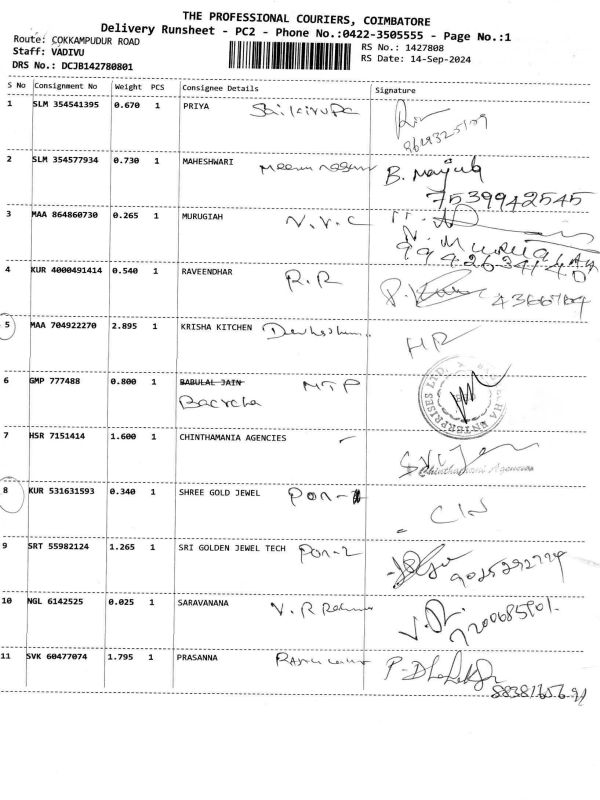 THE PROFESSIONAL COURIERS, COIMBATORE
Delivery Runsheet - PC2 - Phone No.:0422-3505555 - Page No.:1
Route: COKKAMPUDUR ROAD
Staff: VADIVU
DRS No.: DCJB142780801
RS No.: 1427808
RS Date: 14-Sep-2024
S No Consignment No Weight PCS Consignee Details Signature
1 SLM 354541395 0.670 1 PRIYA Saikirupa
2 SLM 354577934 0.730 1 MAHESHWARI B. Manjub
7539942545
3 MAA 864860730 0.265 1 MURUGIAH N.V.C
4 KUR 4000491414 0.540 1 RAVEENDHAR R.R
5 MAA 704922270 2.895 1 KRISHA KITCHEN HR
6 GMP 777488 0.800 1 BABULAL JAIN MTP
7 HSR 7151414 1.600 1 CHINTHAMANIA AGENCIES
Chinthamani Agencies
8 KUR 531631593 0.340 1 SHREE GOLD JEWEL Pon-1
9 SRT 55982124 1.265 1 SRI GOLDEN JEWEL TECH Pon-2
10 NGL 6142525 0.025 1 SARAVANANA
11 SVK 60477074 1.795 1 PRASANNA